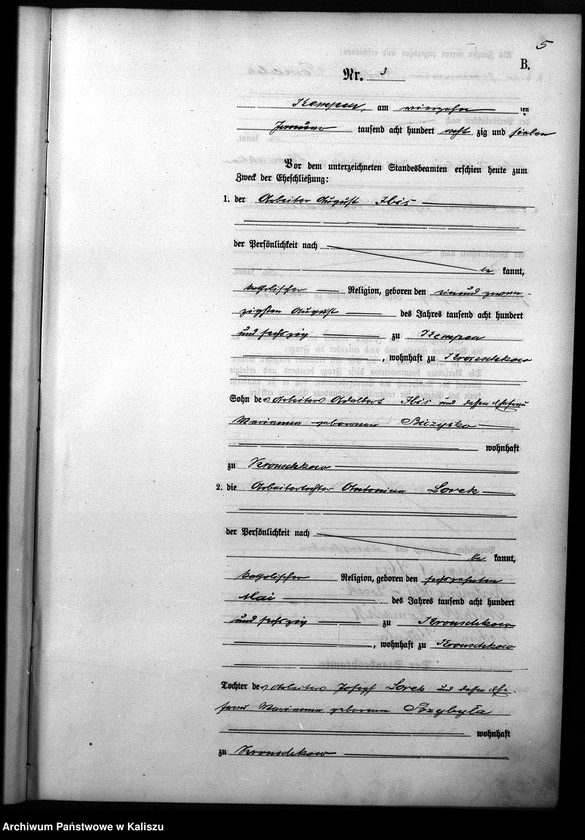 5
B.
Nr. 3
Kempen, am vierzehn ten
Januar tausend acht hundert acht zig und sieben
Vor dem unterzeichneten Standesbeamten erschien heute zum
Zweck der Eheschließung:
1. der Arbeiter August Ibis
der Persönlichkeit nach
be kannt,
katholischer Religion, geboren den einund zwan-
zigsten August des Jahres tausend acht hundert
und sechszig zu Kempen
, wohnhaft zu
Sohn des Arbeiters Adalbert Ibis und dessen Ehefrau
Marianna geborenen
wohnhaft
zu
2. die Arbeitertochter Antonina Lorek
der Persönlichkeit nach
be kannt,
katholischer Religion, geboren den sechszehnten
Mai des Jahres tausend acht hundert
und sechszig zu
, wohnhaft zu
Tochter des Arbeiters Josef Lorek und dessen Ehe-
frau Marianna geborene Przybyła
wohnhaft
zu
Archiwum Państwowe w Kaliszu